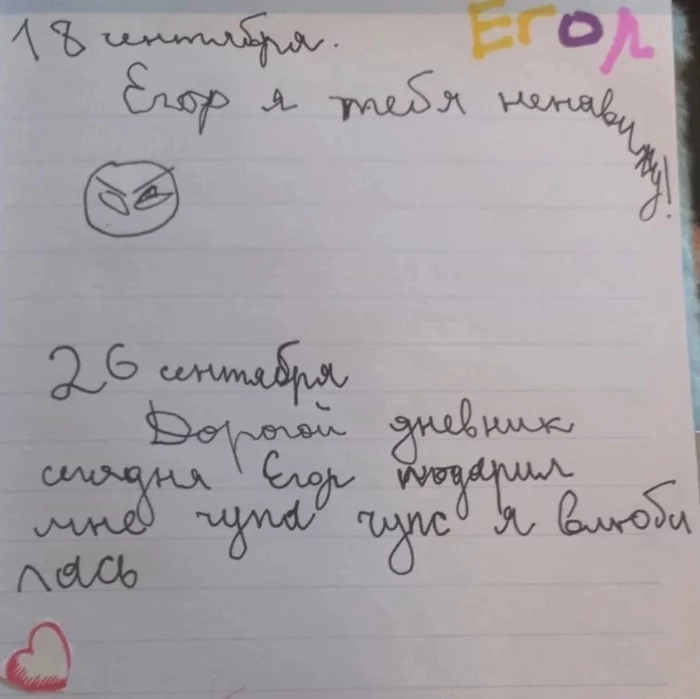 18 сентября.
ЕГОР
Егор я тебя ненавижу!
26 сентября
Дорогой дневник
сегодня Егор подарил
мне чупа чупс я влюби
лась